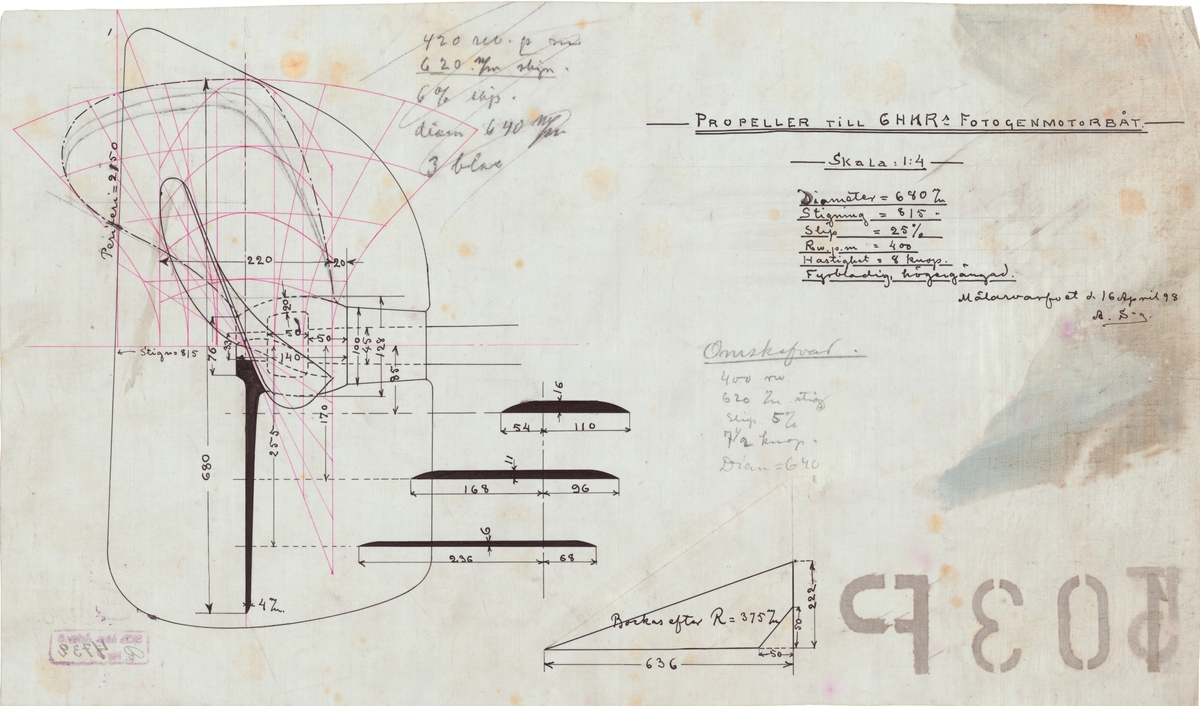 420 rev. p m
620 m/m stign.
6% slip.
diam 640 m/m
3 blad
PROPELLER TILL 6HKRS FOTOGENMOTORBÅT
Skala: 1:4
Diameter = 680
Stigning = 815
Slip = 25%
Rev. p.m = 400
Hastighet = 8 knop.
Fyrbladig, högergängad.
16 April 98
Omskofvad.
400 rev
620 stig
Slip 5%
7½ knop.
Diam = 640
Periferi = 2150
Stign = 815
220
20
20
50
50
140
76
33
100
45
128
85
170
255
680
4
16
54
110
11
168
96
6
236
68
Bockas efter R = 375
222
50
50
636
P 3 0 1